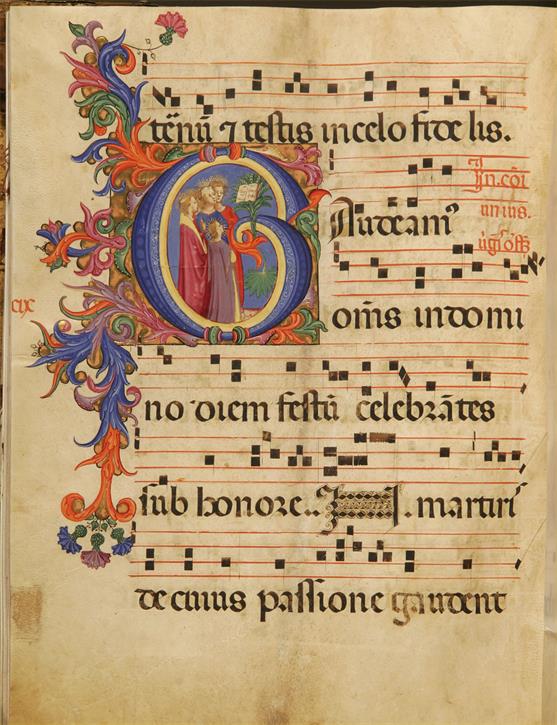 tēnū ⁊ testis in celo fide lis.
In. cōi
un ius.
GAudeamꝰ
om̄s in domi
no diem festū celebrātes
sub honore.. . martiris
de cuius passione gaudent
cix